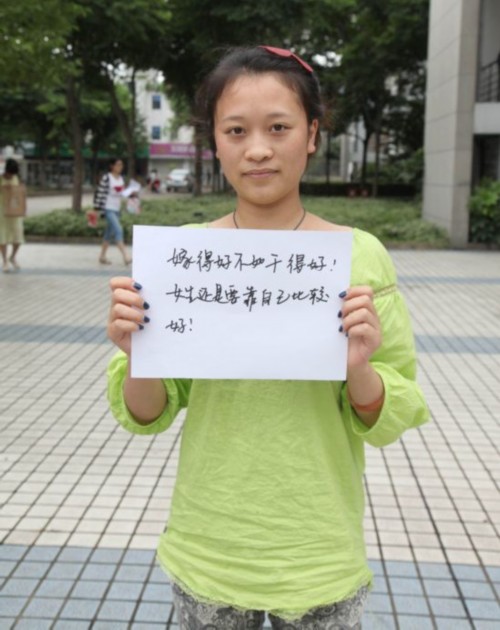 嫁得好不如干得好!
女生还是要靠自己比较
好!